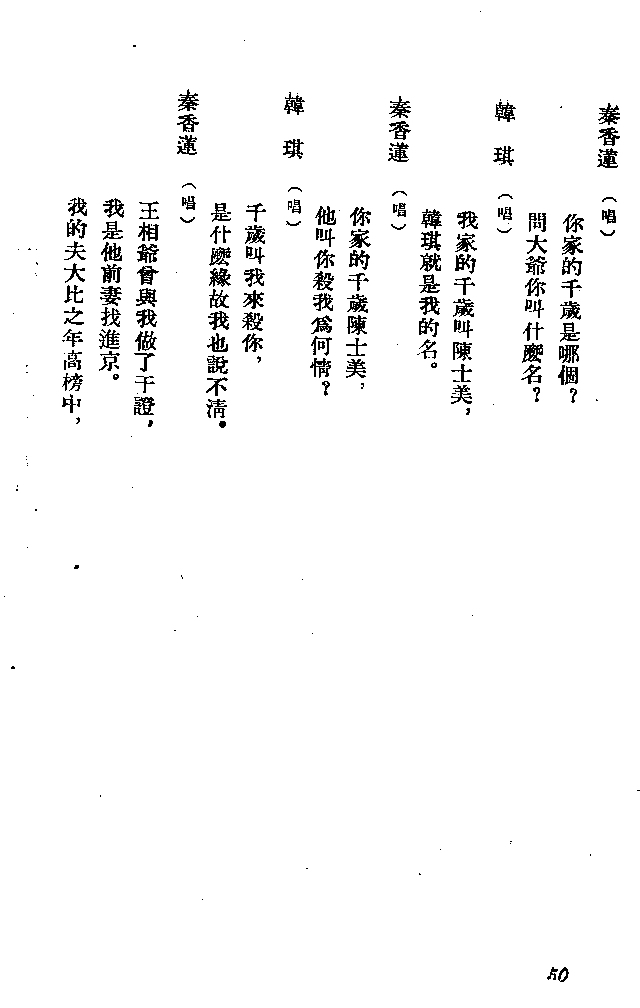 秦香蓮（唱）
你家的千歲是哪個？
問大爺你叫什麽名？
韓琪（唱）
我家的千歲叫陳士美，
韓琪就是我的名。
秦香蓮（唱）
你家的千歲陳士美，
他叫你殺我爲何情？
韓琪（唱）
千歲叫我來殺你，
是什麽緣故我也說不淸。
秦香蓮（唱）
王相爺曾與我做了干證，
我是他前妻找進京。
我的夫大比之年高榜中，
50